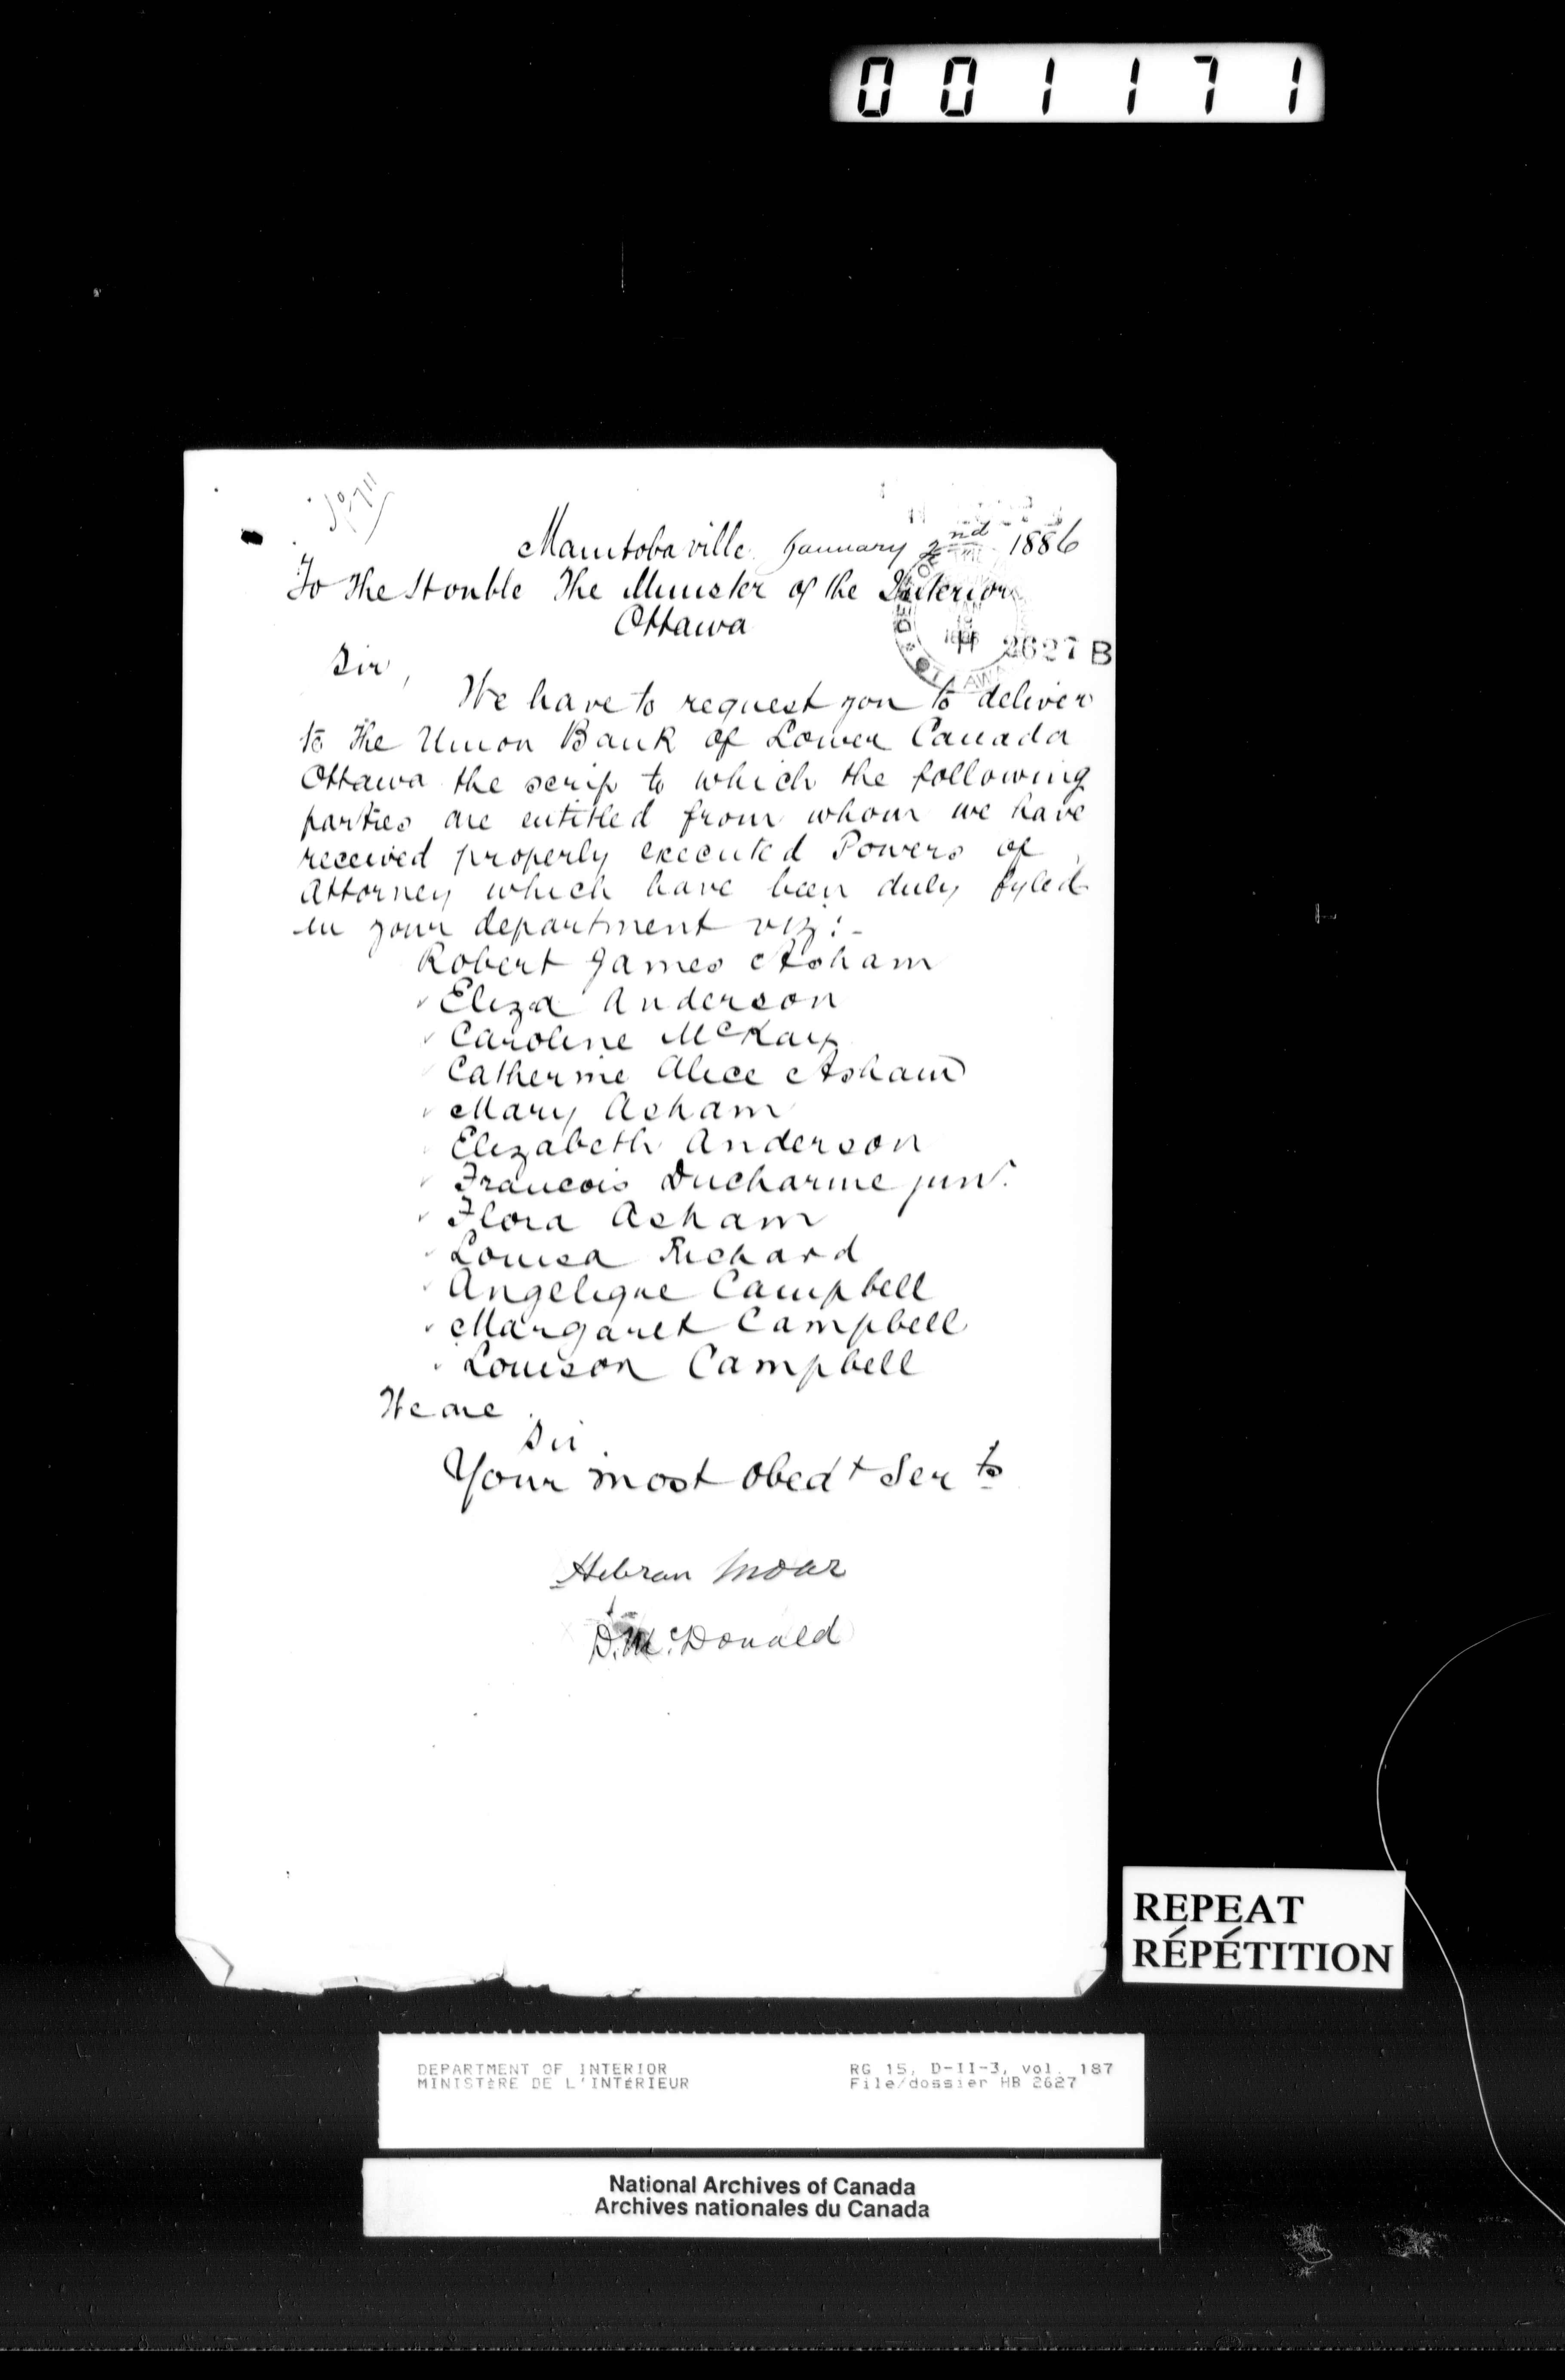 001171
Manitobaville January 2nd 1886
To The Honble The Minister of the Interior
Ottawa
2627 B
Sir,
We have to request you to deliver
to the Union Bank of Lower Canada
Ottawa the scrip to which the following
parties are entitled from whom we have
received properly executed Powers of
Attorney which have been duly fyled
in your department viz:-
Robert James Asham
Eliza Anderson
Caroline McKay
Catherine Alice Asham
Mary Asham
Elizabeth Anderson
Francois Ducharme junr.
Flora Asham
Louisa Richard
Angelique Campbell
Margaret Campbell
Louison Campbell
We are
Sir
Your most obedt Servts
Hebran Moar
D. McDonald
REPEAT
RÉPÉTITION
DEPARTMENT OF INTERIOR RG 15, D-II-3, vol. 187
MINISTÈRE DE L'INTÉRIEUR File/dossier HB 2627
National Archives of Canada
Archives nationales du Canada